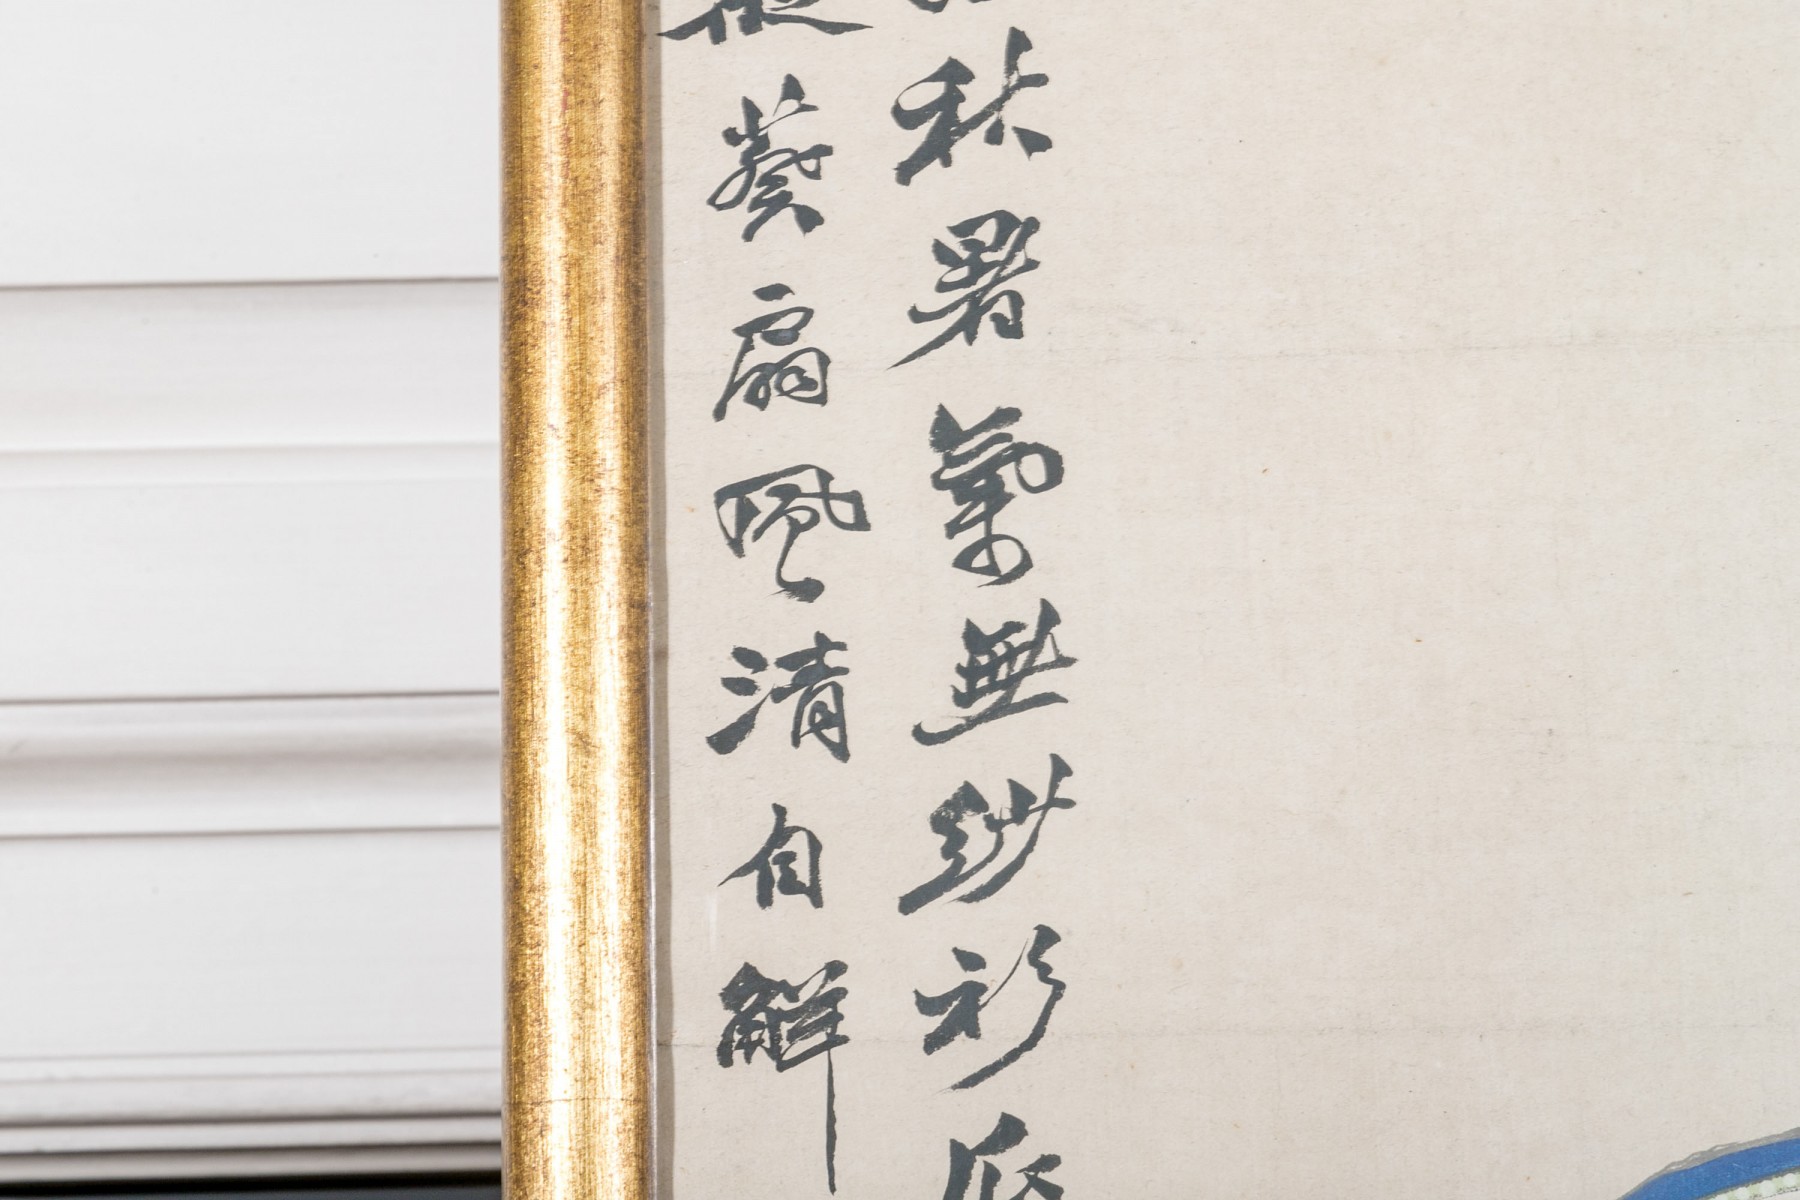 秋暑氣無紗衫
葵扇風清自解